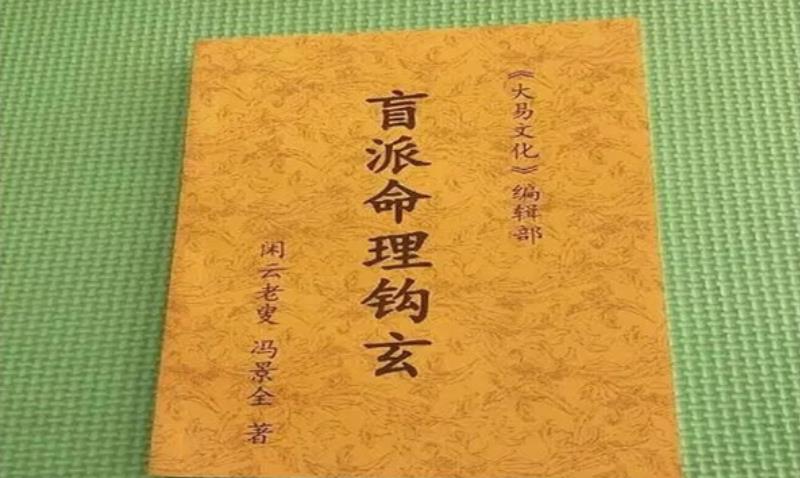 《大易文化》编辑部
盲派命理钩玄
闲云老叟 冯景全 著